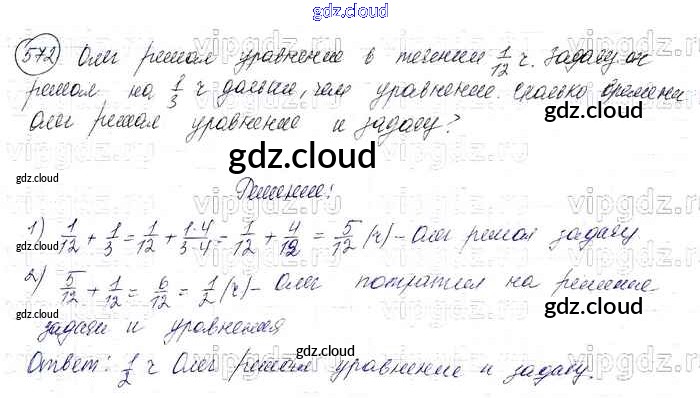 gdz.cloud
572 Олег решал уравнение в течении 1/12 ч. Задачу он
решал на 1/3 ч дольше, чем уравнение сколько времени
Олег решал уравнение и задачу?
gdz.cloud
gdz.cloud gdz.cloud
Решение:
gdz.cloud
1) 1/12 + 1/3 = 1/12 + 1·4/3·4 = 1/12 + 4/12 = 5/12 (ч) - Олег решал задачу
2) 5/12 + 1/12 = 6/12 = 1/2 (ч) - Олег потратил на решение
gdz.cloud
задачи и уравнения
gdz.cloud
Ответ: 1/2 ч Олег решал уравнение и задачу.
gdz.cloud
vipgdz.ru